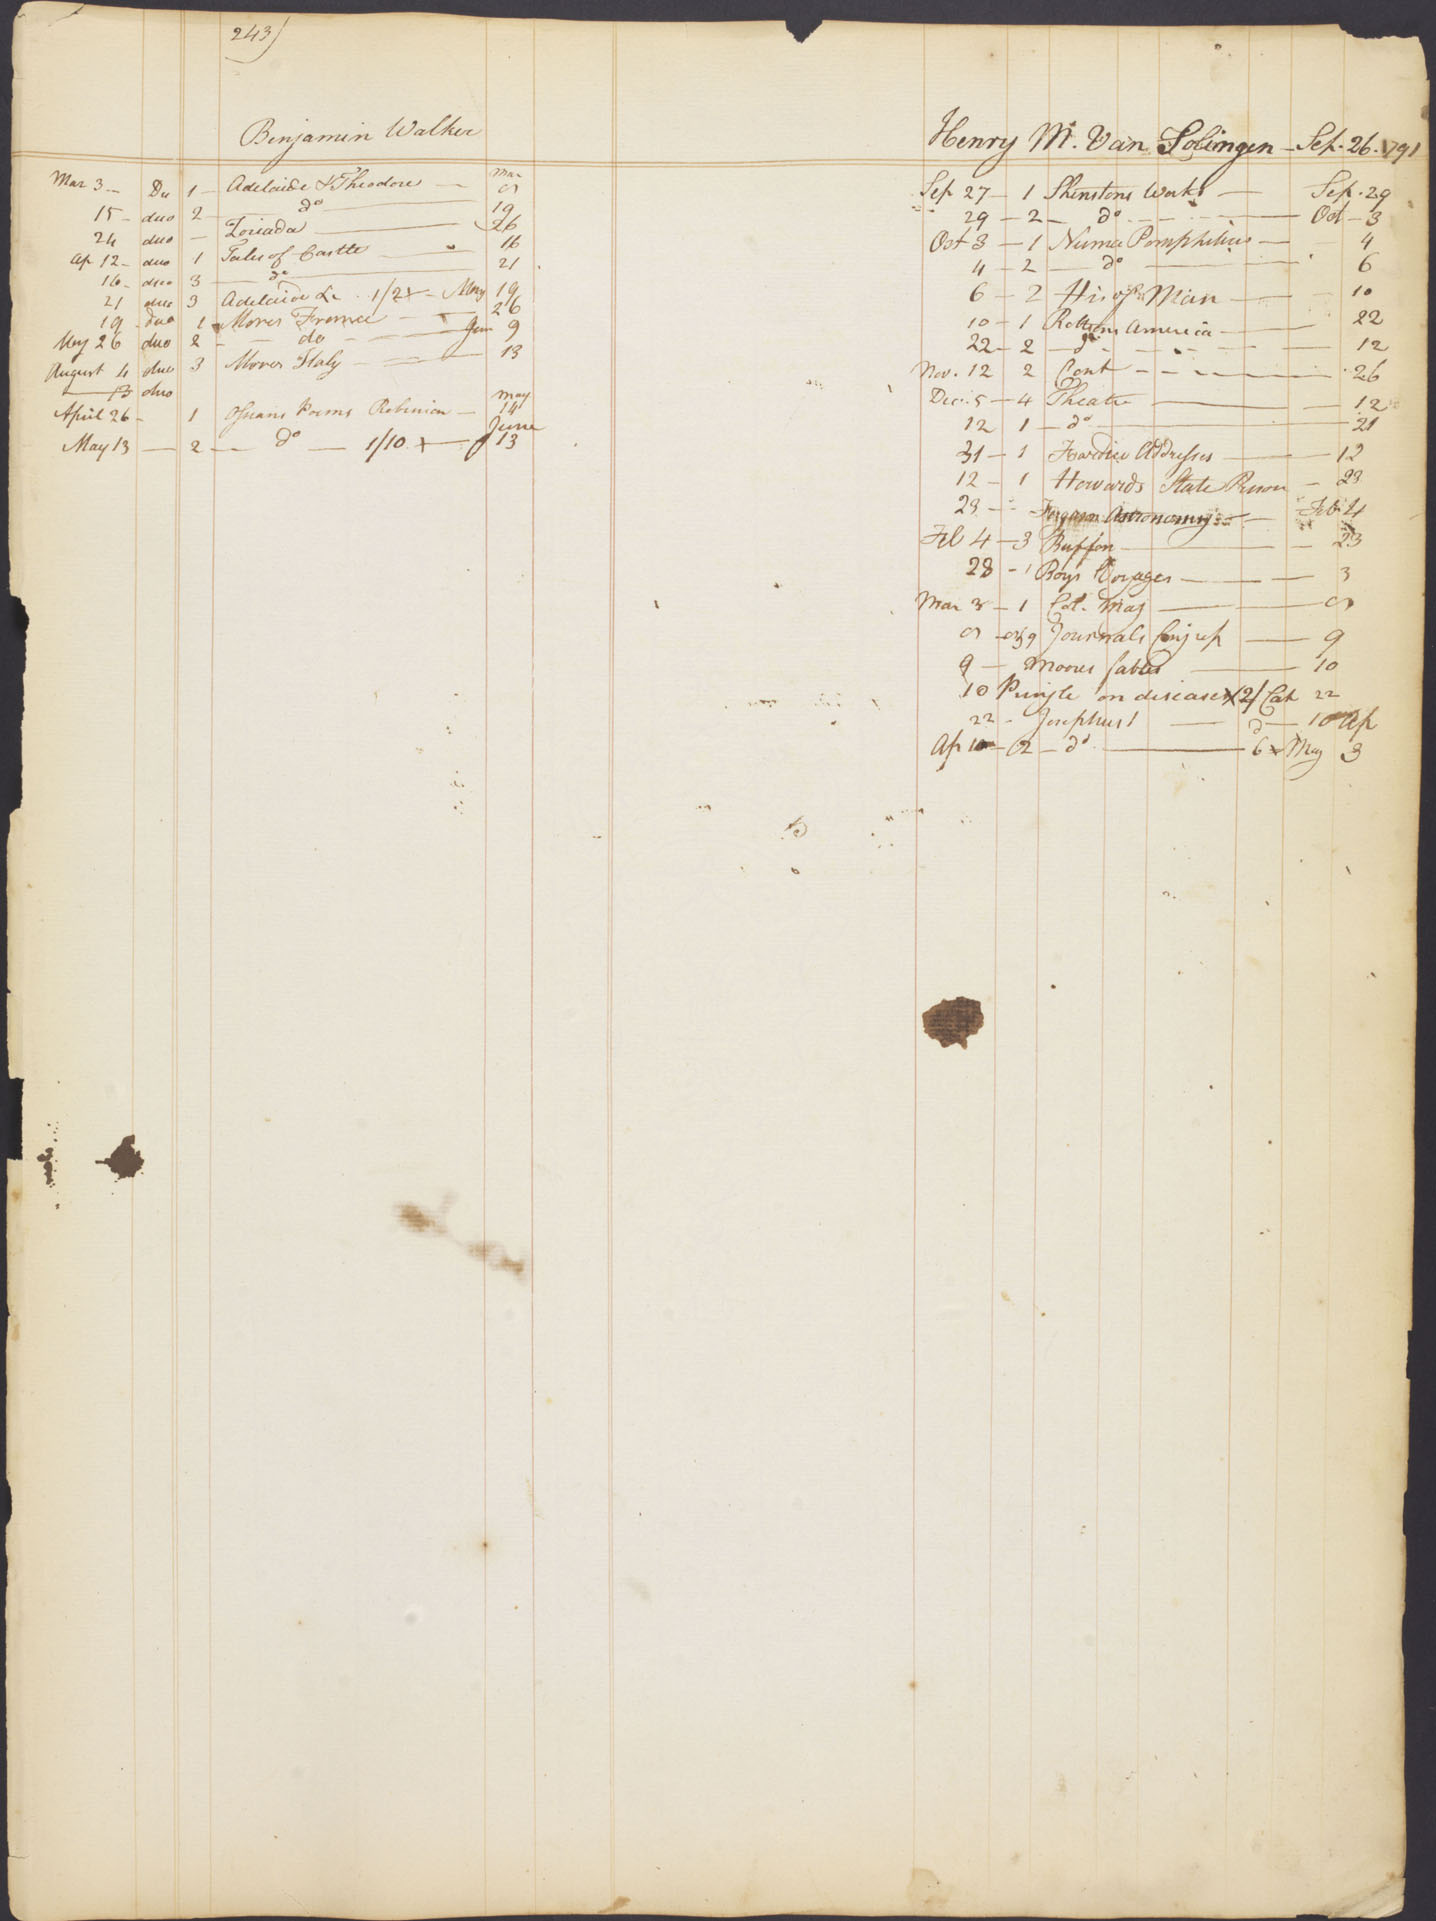 243)
Benjamin Walker
Mar 3 - Du 1 - Adelaide & Theodore - Mar
15 - duo 2 - do - 19
24 duo - Zoriada - 26
Ap 12 - duo 1 Tales of Castle - 16
16 - duo 3 - do - 21
21 duo 3 Adelaide &c 1/2 x - May 19
19 duo 1 - Mores France - 26
May 26 duo 2 - do - Jun 9
August 4 duo 3 Mores Italy - 13
13 duo
April 26 - 1 Ossians Poems Robinson - May 14
May 13 - 2 - do - 1/10 x - June 13
Henry M. Van Solingen - Sep. 26. 1791
Sep 27 - 1 Shinstons Works - Sep. 29
29 - 2 - do - Oct - 3
Oct 3 - 1 Numa Pomphilius - 4
4 - 2 - do - 6
6 - 2 His of Man - 10
10 - 1 America - 22
22 - 2 - do - 12
Nov. 12 2 Cont - 26
Dec. 5 - 4 Theatre - 12
12 1 - do - 21
31 - 1 Fordice Addresses - 12
12 - 1 Howards State Prison - 23
23 - Ferguson Astronomy - Feb 4
Feb 4 - 3 Buffon - 23
28 - 1 Boys Voyages - 3
Mar 3 - 1 Col. Mag -
Journals - 9
9 - Moores fables - 10
10 Pringle on diseases x 2/ Cat 22
22 - Josephus 1 - 10 Ap
Ap 10 - 2 - do - 6 x May 3